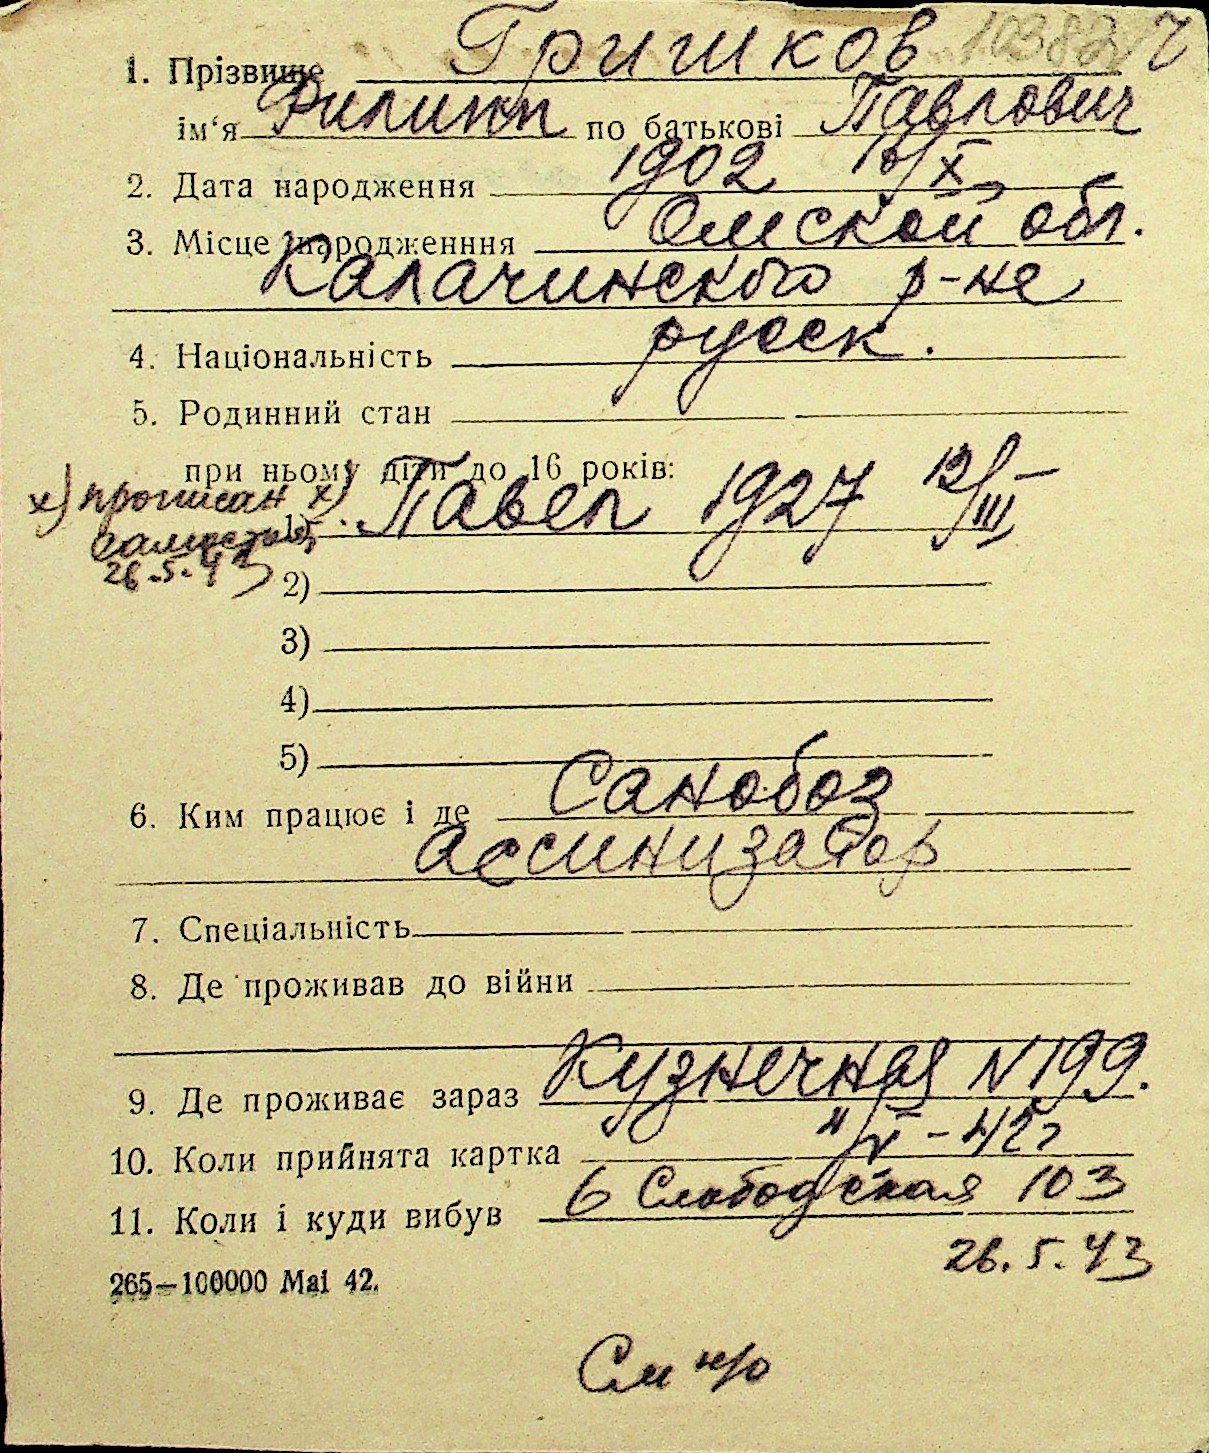 1. Прізвище Гришков 10382 ч
ім'я Филипп по батькові Павлович
2. Дата народження 1902 12/X
3. Місце народженння Омской обл.
Калачинского р-не
4. Національність русск.
5. Родинний стан
при ньому діти до 16 років:
х) прописан х)
1) Павел 1927 12/III
самост.
26.5.43
2)
3)
4)
5)
6. Ким працює і де Санобоз
ассинизатор
7. Спеціальність
8. Де проживав до війни
9. Де проживає зараз Кузнечная N 199.
10. Коли прийнята картка 11/V - 42г
11. Коли і куди вибув 6 Слободская 103
26.5.43
265—100000 Mai 42.
См н/о